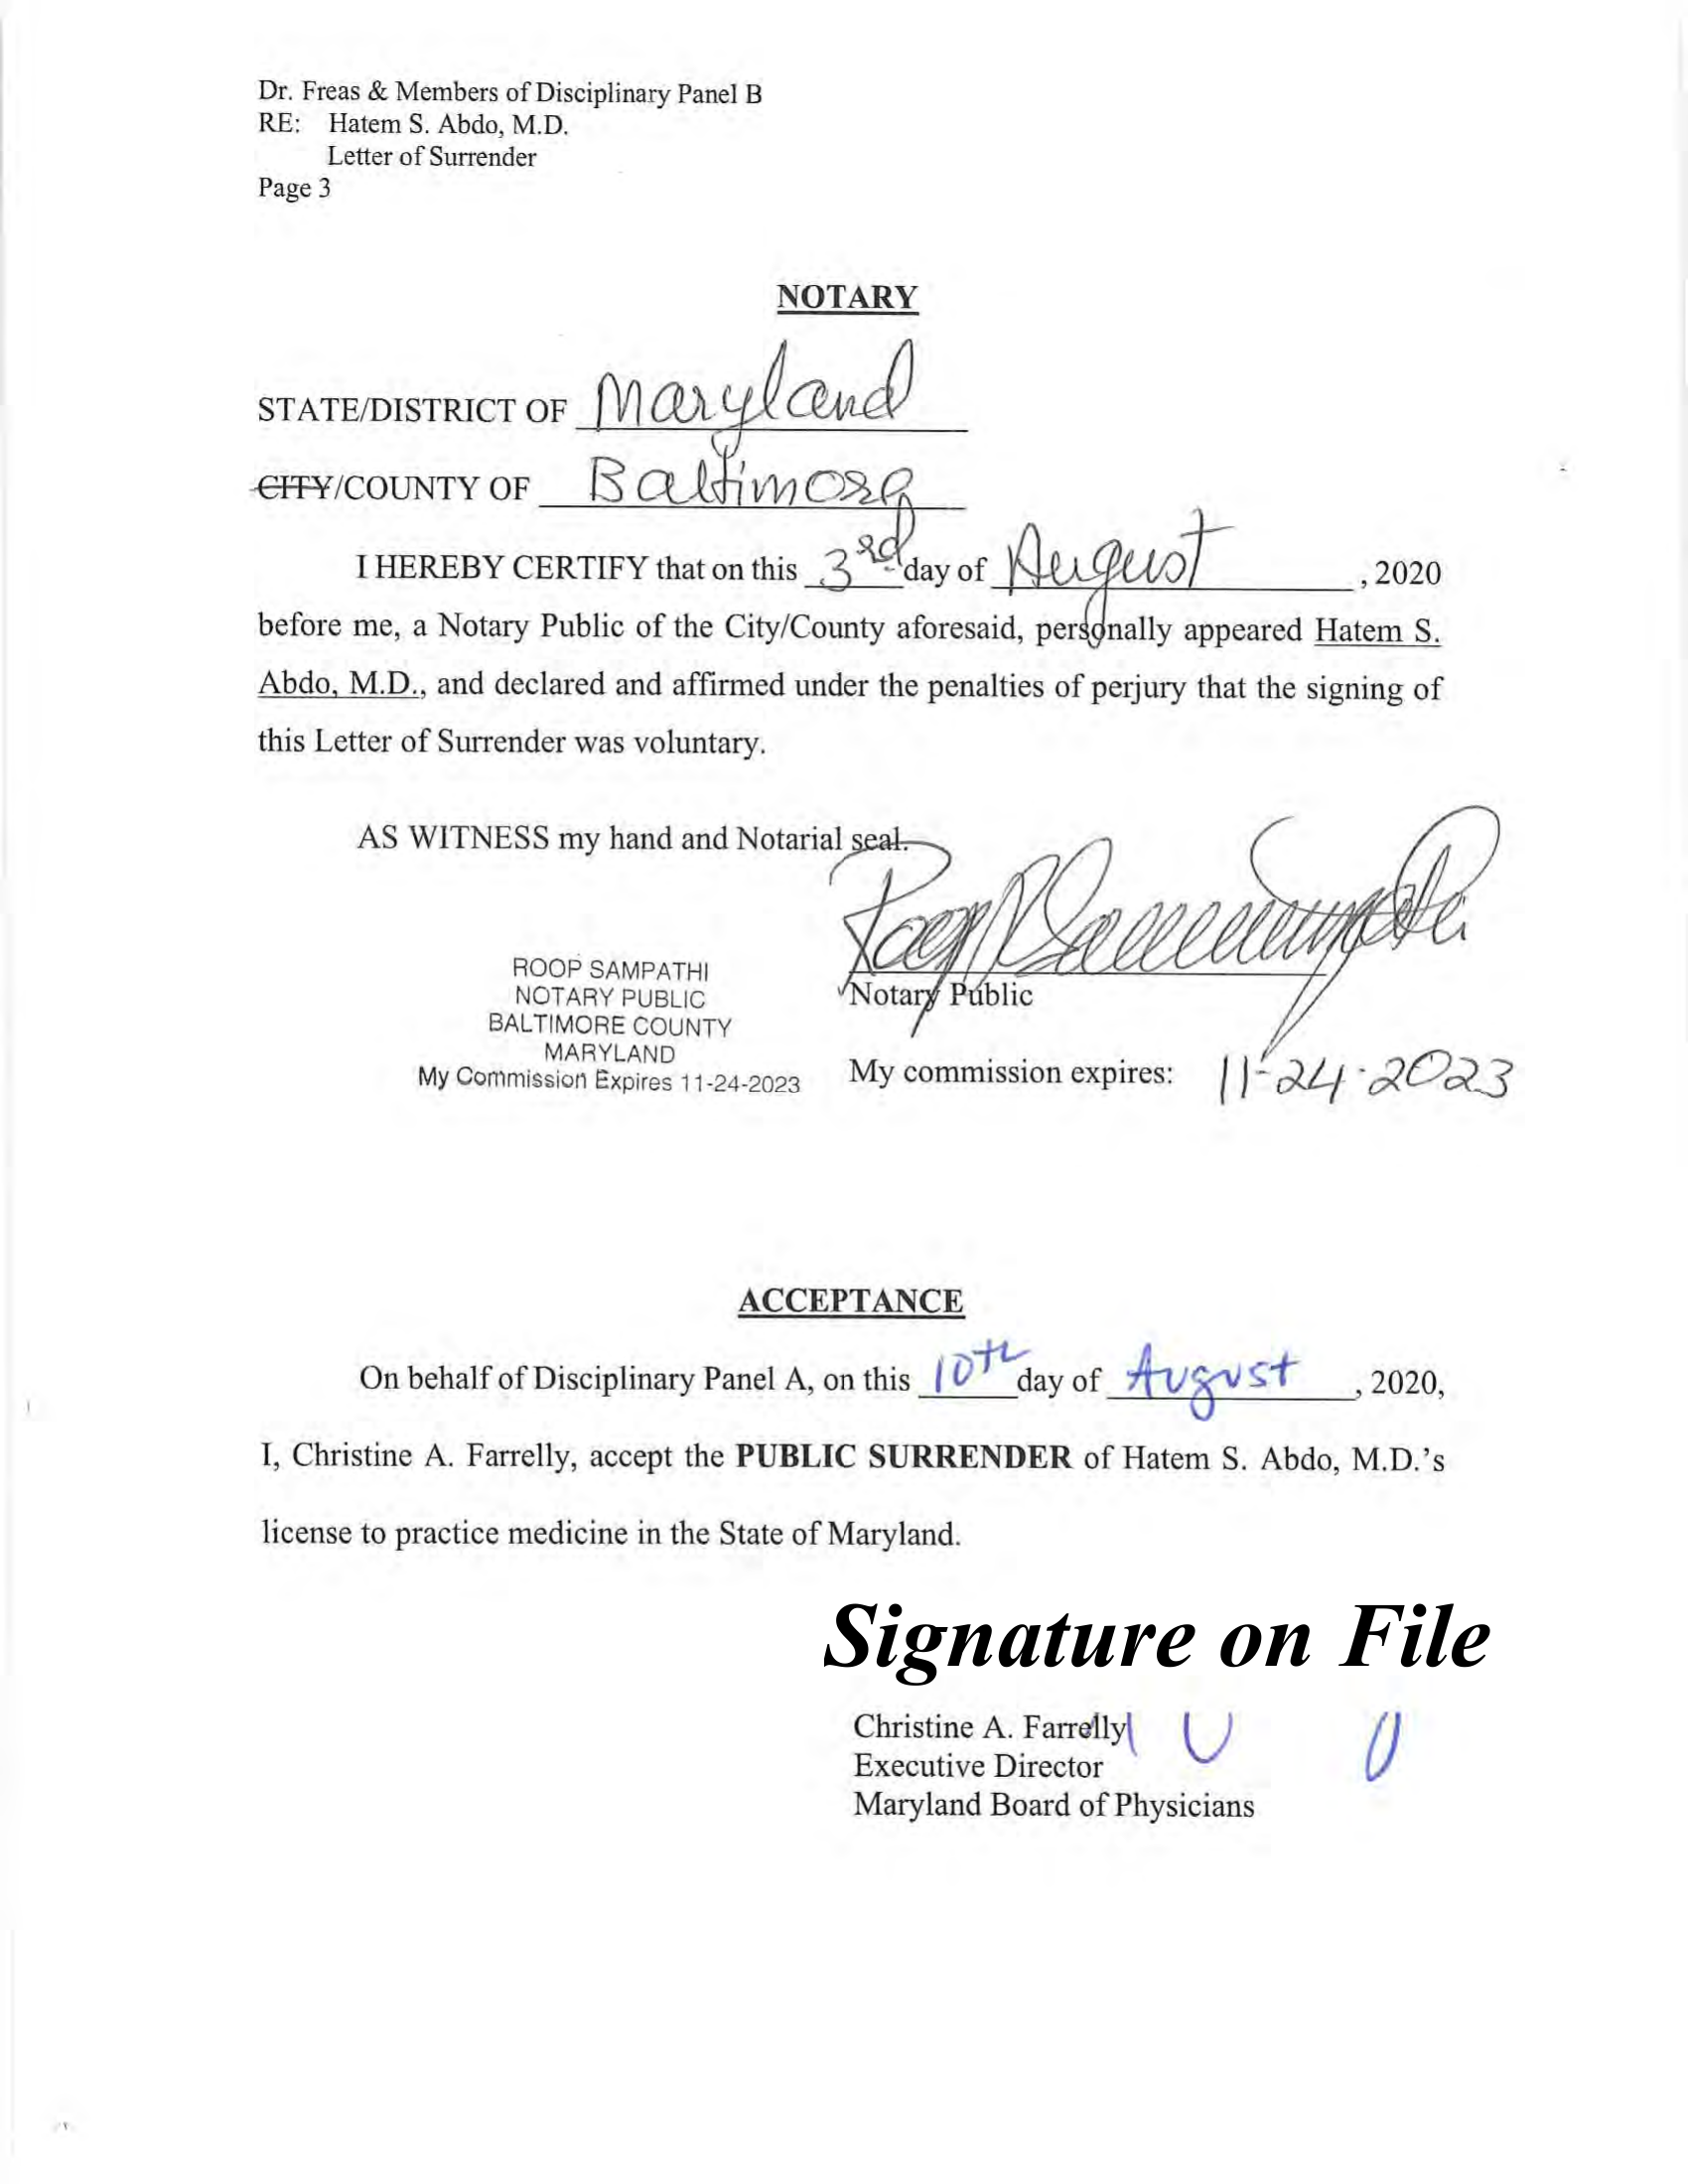 Dr. Freas & Members of Disciplinary Panel B
RE: Hatem S. Abdo, M.D.
Letter of Surrender
Page 3
NOTARY
STATE/DISTRICT OF Maryland
CITY/COUNTY OF Baltimore
I HEREBY CERTIFY that on this 3rd day of August, 2020
before me, a Notary Public of the City/County aforesaid, personally appeared Hatem S.
Abdo, M.D., and declared and affirmed under the penalties of perjury that the signing of
this Letter of Surrender was voluntary.
AS WITNESS my hand and Notarial seal.
ROOP SAMPATHI
NOTARY PUBLIC
BALTIMORE COUNTY
MARYLAND
My Commission Expires 11-24-2023
Notary Public
My commission expires: 11-24-2023
ACCEPTANCE
On behalf of Disciplinary Panel A, on this 10th day of August, 2020,
I, Christine A. Farrelly, accept the PUBLIC SURRENDER of Hatem S. Abdo, M.D.'s
license to practice medicine in the State of Maryland.
Signature on File
Christine A. Farrelly
Executive Director
Maryland Board of Physicians